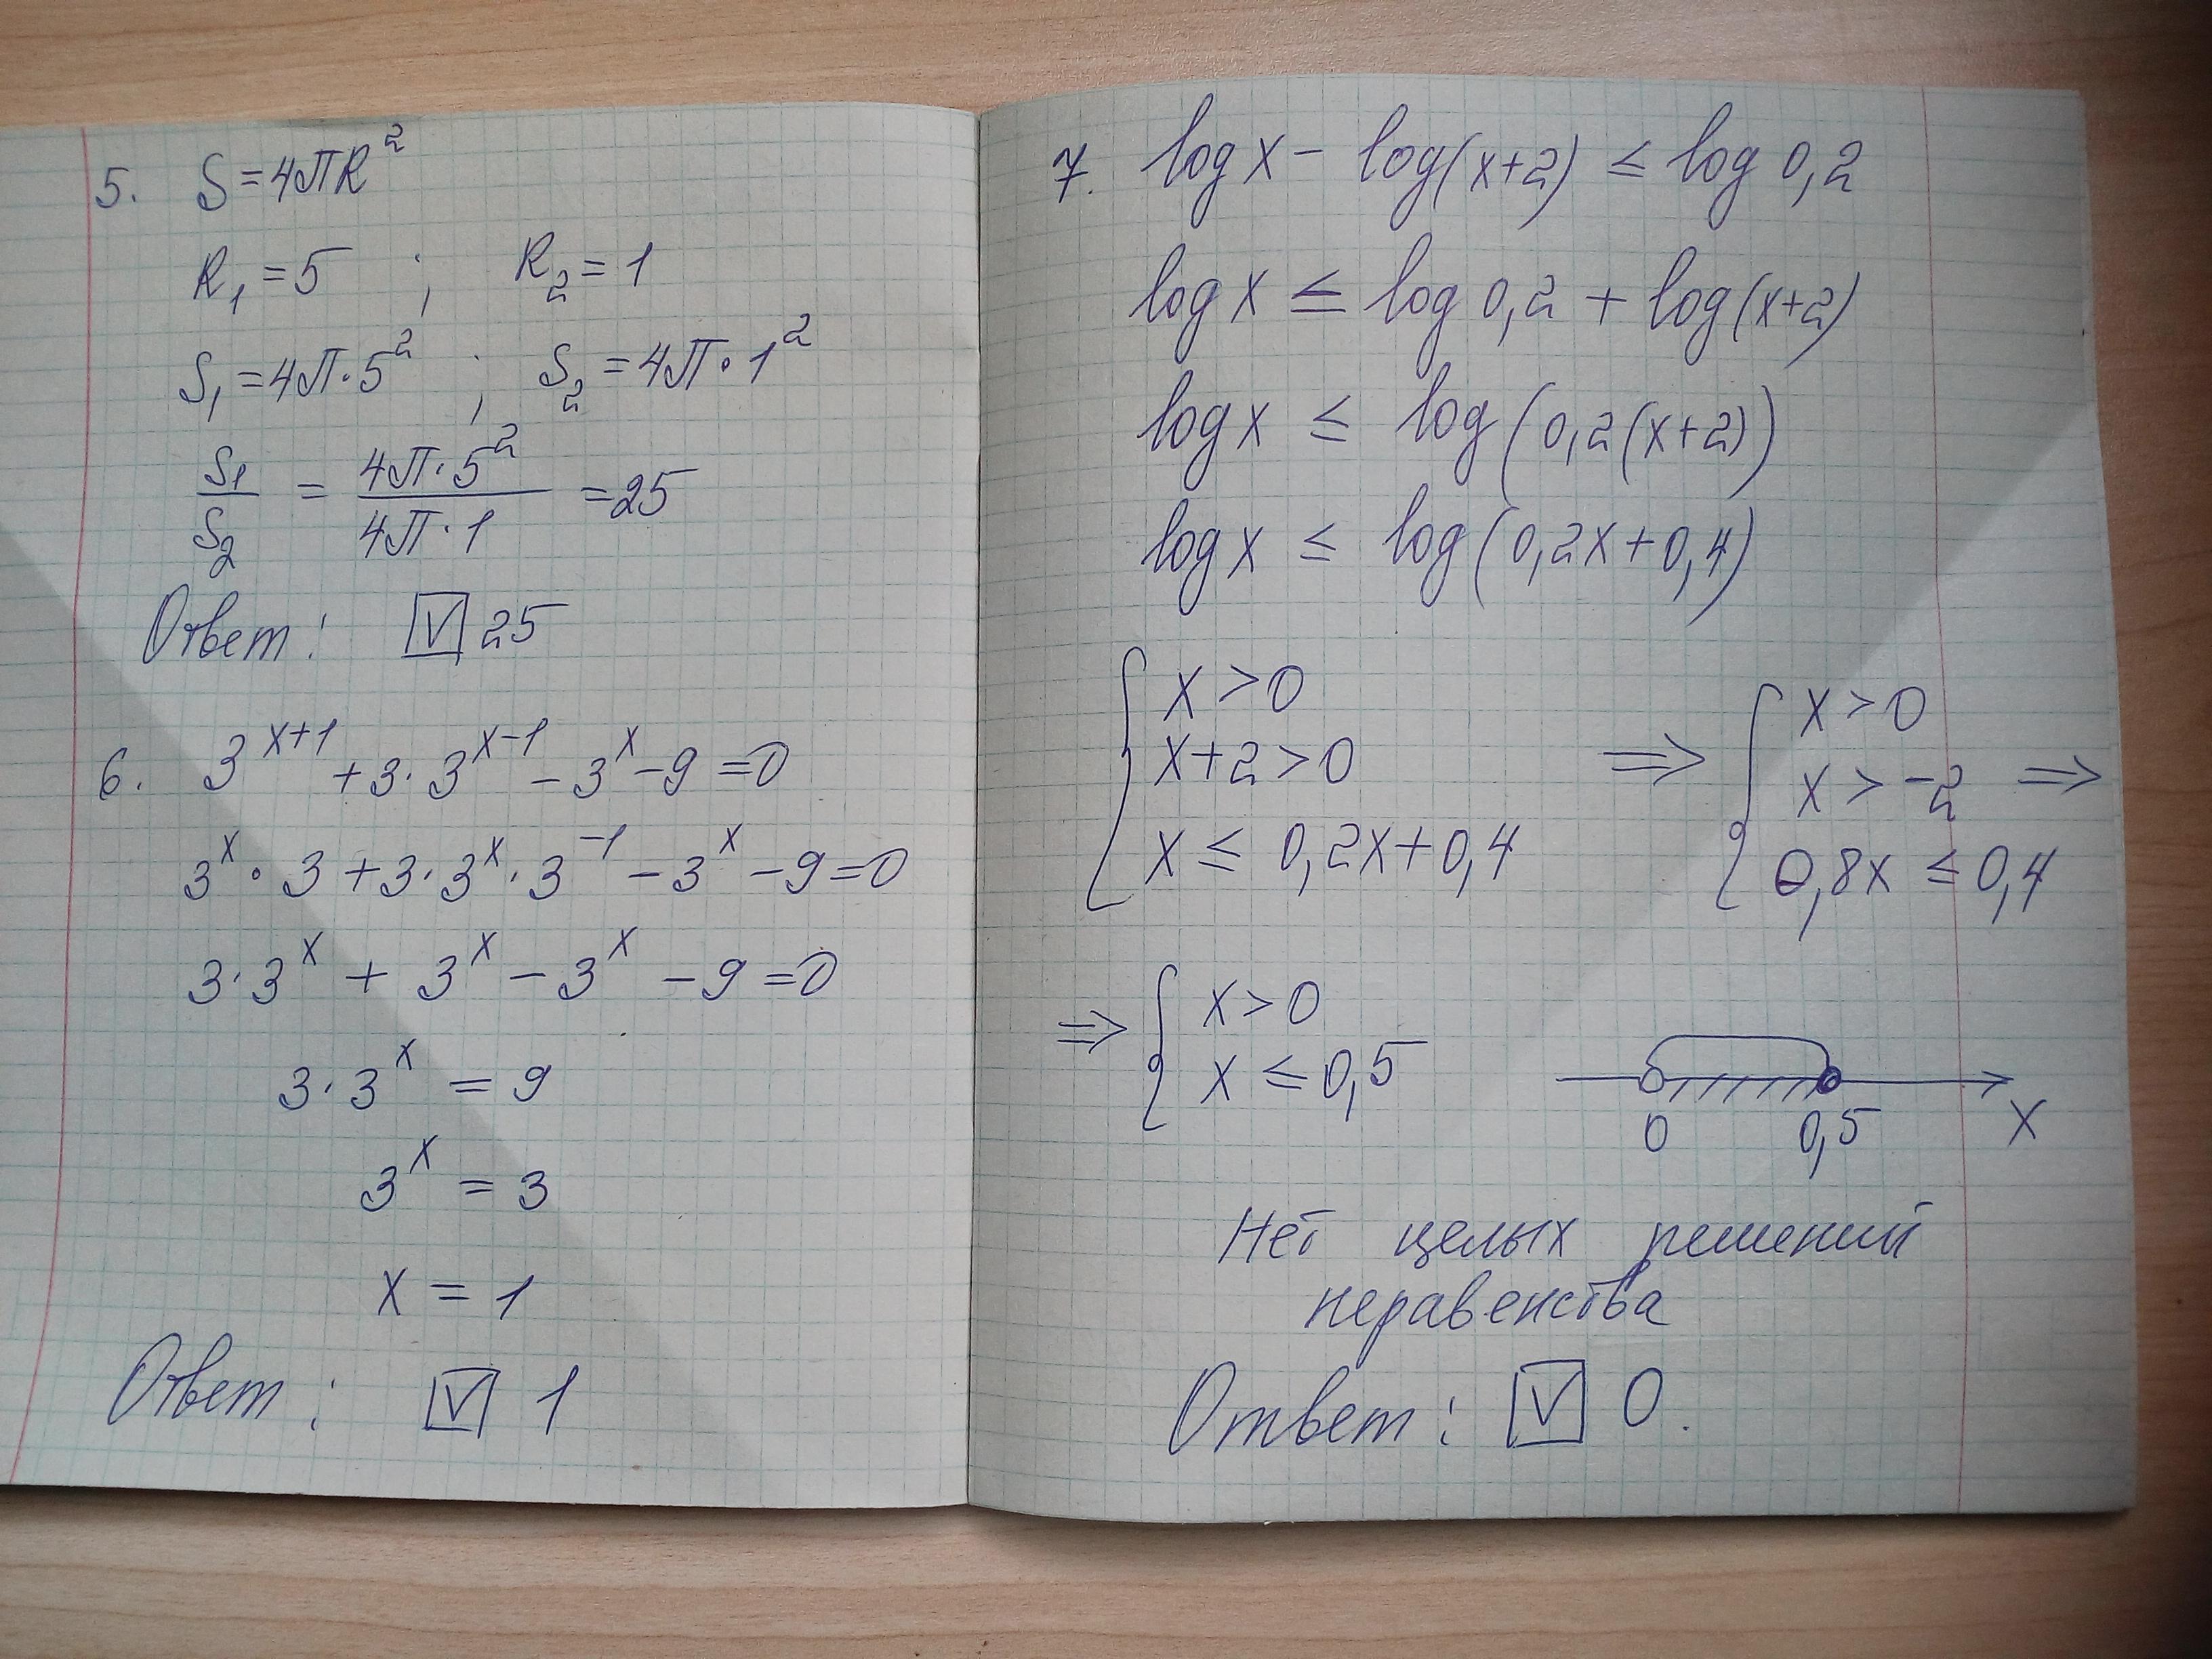 5. S = 4πR²
R₁ = 5 ; R₂ = 1
S₁ = 4π·5² ; S₂ = 4π·1²
S₁/S₂ = 4π·5²/4π·1 = 25
Ответ: ☑ 25
6. 3^(x+1) + 3·3^(x-1) - 3^x - 9 = 0
3^x · 3 + 3·3^x·3^(-1) - 3^x - 9 = 0
3·3^x + 3^x - 3^x - 9 = 0
3·3^x = 9
3^x = 3
x = 1
Ответ: ☑ 1
7. log x - log(x+2) ≤ log 0,2
log x ≤ log 0,2 + log(x+2)
log x ≤ log(0,2(x+2))
log x ≤ log(0,2x+0,4)
{ x > 0
x+2 > 0
x ≤ 0,2x+0,4
⇒ { x > 0
x > -2 ⇒
0,8x ≤ 0,4
⇒ { x > 0
x ≤ 0,5
0 0,5 x
Нет целых решений
неравенства
Ответ: ☑ 0.